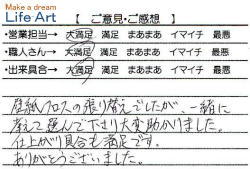 Make a dream
Life Art 【 ご意見・ご感想 】
・営業担当→ 大満足 満足 まあまあ イマイチ 最悪
・職人さん→ 大満足 満足 まあまあ イマイチ 最悪
・出来具合→ 大満足 満足 まあまあ イマイチ 最悪
壁紙クロスの張り替えでしたが、一緒に
考えて選んで下さり大変助かりました。
仕上がり具合も満足です。
ありがとうございました。